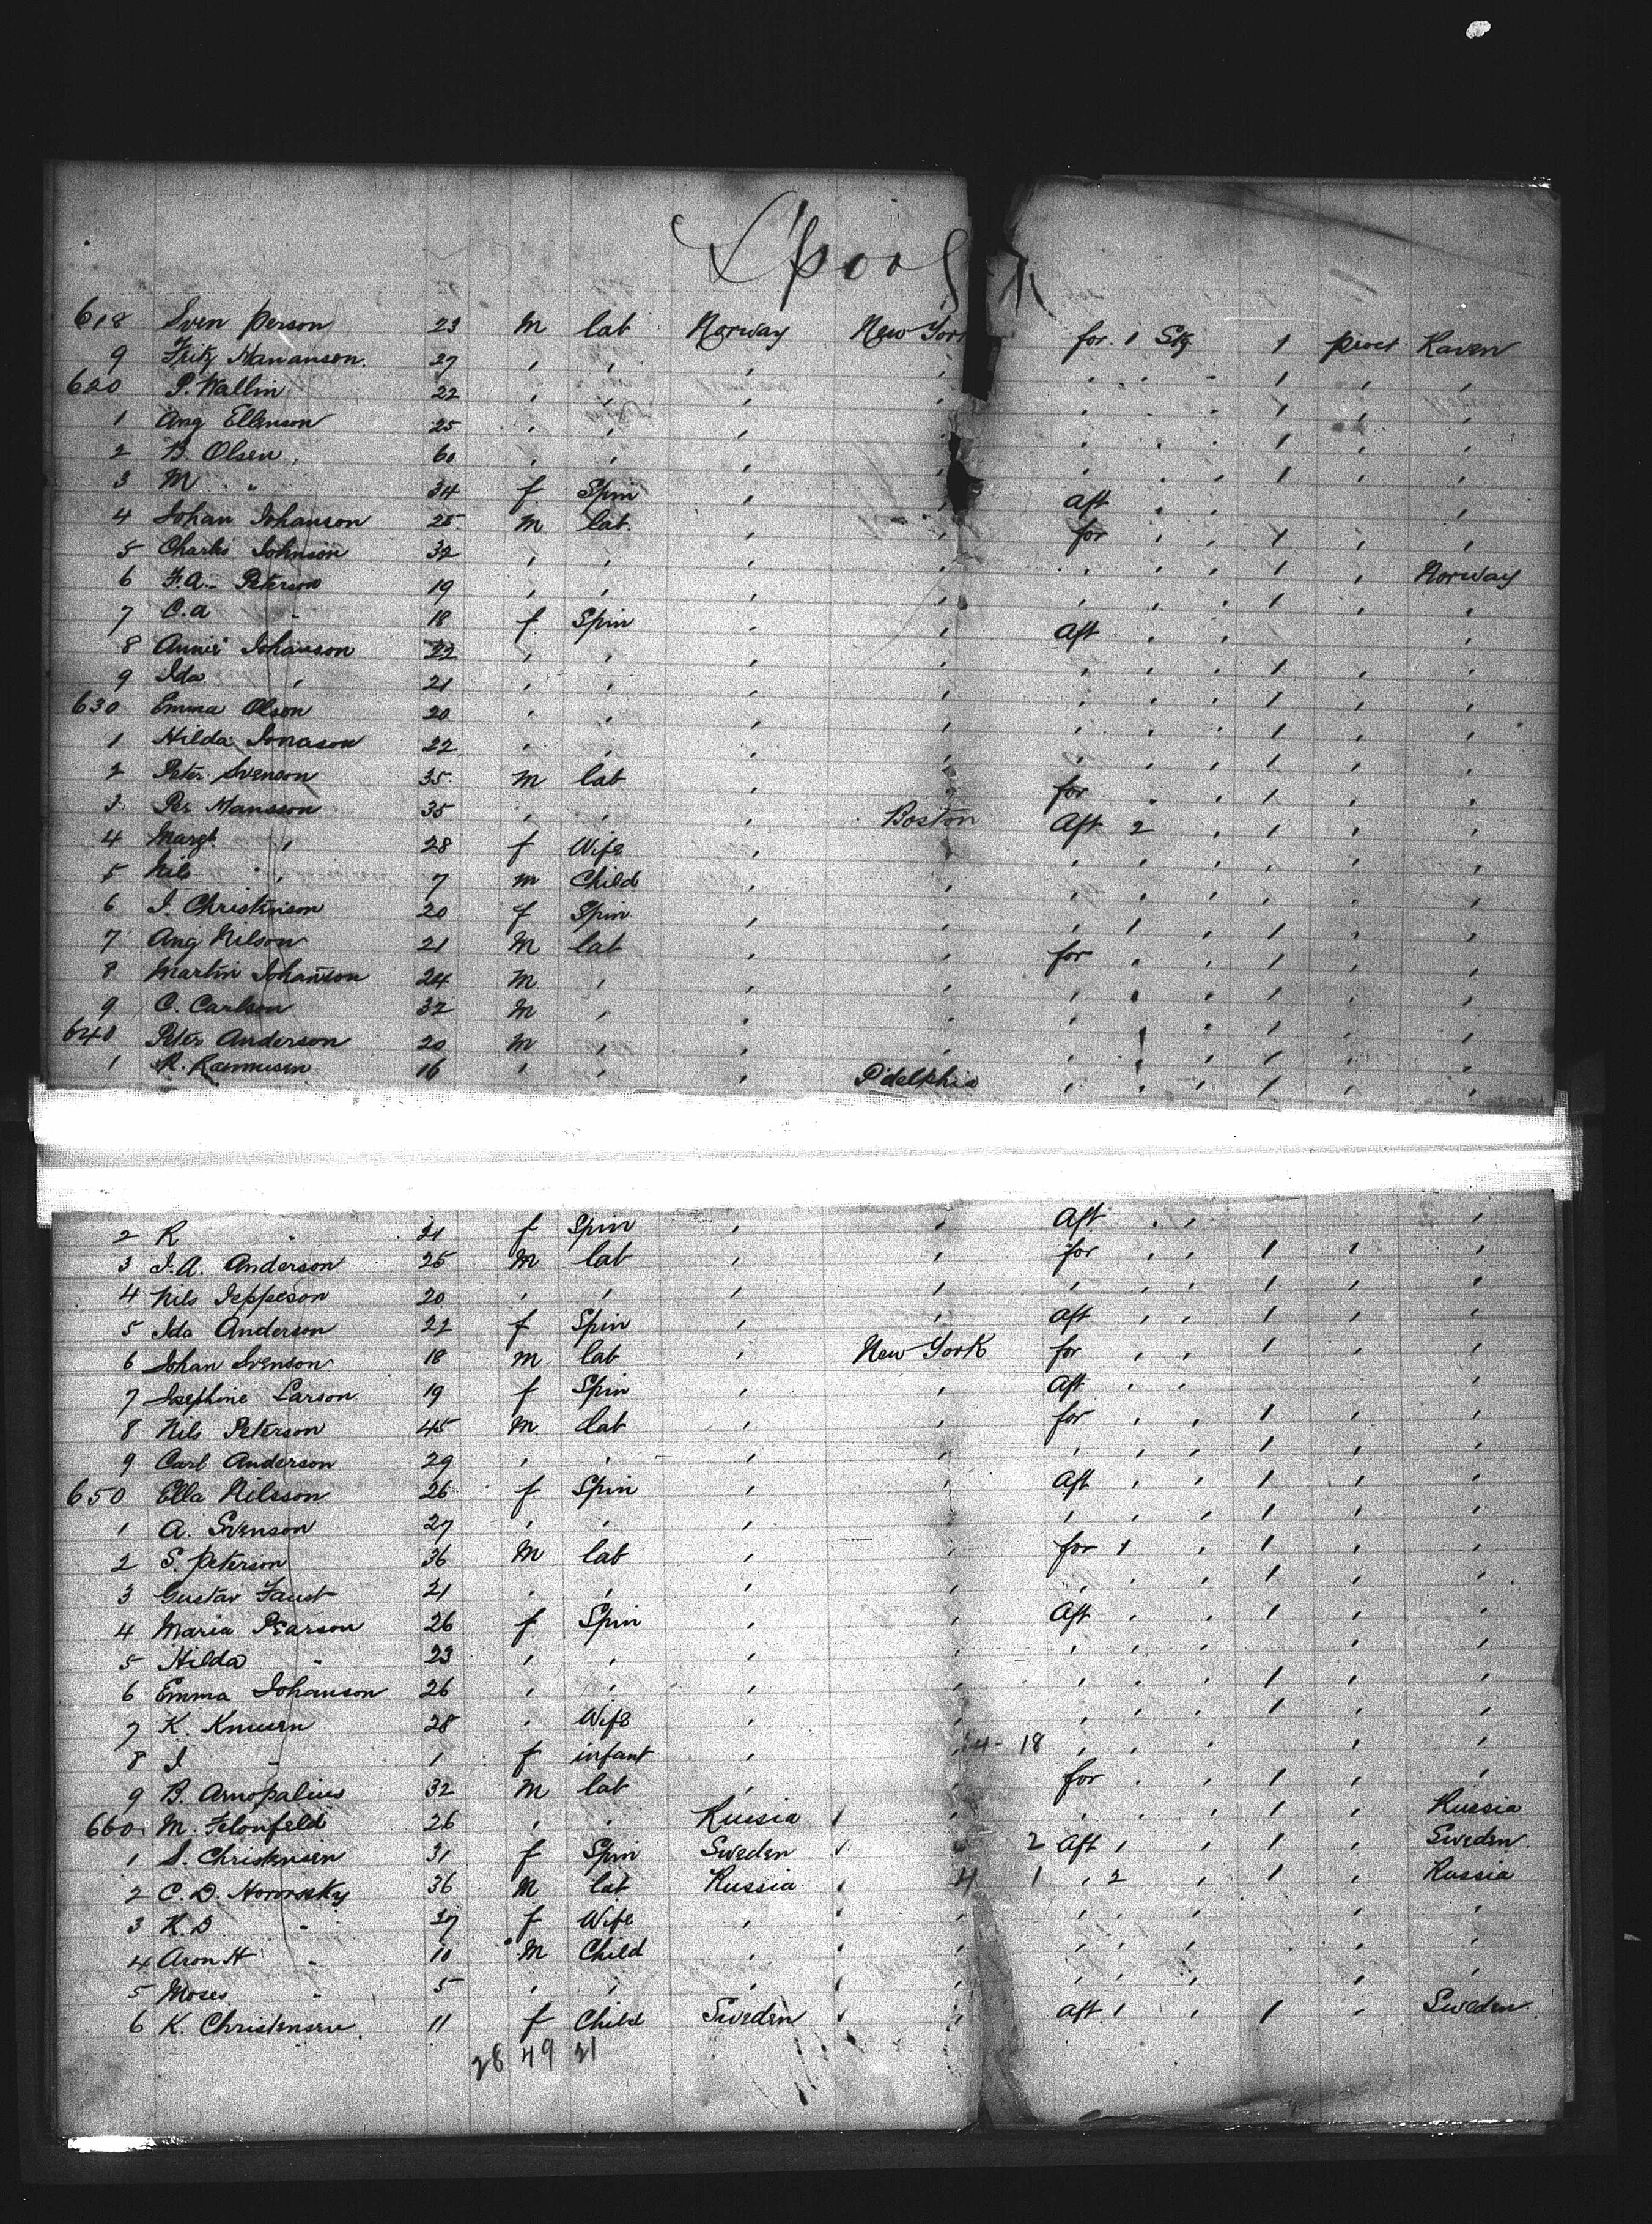 L'pool
618 Sven Person 23 M lab Norway New York for. 1 Stg 1 proct Raven
9 Fritz Hananson. 27 , , , , , . - 1 , ,
620 P. Wallin 22 , , , , . . . 1 , ,
1 Aug Ellenson 25 , , , , . . . 1 , ,
2 B. Olsen 60 , , , , . . . 1 , ,
3 M " 34 f Spin , , Aft , , ,
4 Johan Johanson 25 M lab. , , for , , 1 , ,
5 Charles Johnson 32 , , , , , , , 1 , Norway
6 F.A. Peterson 19 , , , , , , , 1 , ,
7 C.a " 18 f Spin , , Aft , , ,
8 Annie Johanson 22 , , , , , , , 1 , ,
9 Ida , 21 , , , , , , , 1 , ,
630 Emma Olson 20 , , , , , , , 1 , ,
1 Hilda Jonason 22 , , , , , , , 1 , ,
2 Peter Svenson 35 M lab , , for , , 1 , ,
3 Per Mansson 35 , , , Boston Aft 2 , 1 , ,
4 Margt , 28 f Wife , , , , , , ,
5 Nils , 7 m Child , , , , , , ,
6 I. Christenson 20 f Spin , , , 1 , 1 , ,
7 Aug Nilson 21 M lab , , for , , 1 , ,
8 Martin Johanson 24 M , , , , , , 1 , ,
9 C. Carlson 32 M , , , , , , 1 , ,
640 Peter Anderson 20 M , , , , , , 1 , ,
1 R. Rasmusen 16 , , , P'delphia , , , 1 , ,
2 R " 21 f Spin , , Aft , , ,
3 J.A. Anderson 25 M lab , , for , , 1 , ,
4 Nils Jeppeson 20 , , , , , , , 1 , ,
5 Ida Anderson 22 f Spin , , Aft , , 1 , ,
6 Johan Svenson 18 m lab , New York for , , 1 , ,
7 Josephine Larson 19 f Spin , , Aft , , ,
8 Nils Peterson 45 M lab , , for , , 1 , ,
9 Carl Anderson 29 , , , , , , , 1 , ,
650 Ella Nilsson 26 f Spin , , Aft , , 1 , ,
1 A. Svenson 27 , , , , , , , 1 , ,
2 S. Peterson 36 M lab , , for 1 , 1 , ,
3 Gustav Faust 21 , , , , , , , 1 , ,
4 Maria Pearson 26 f Spin , , Aft , , 1 , ,
5 Hilda " 23 , , , , , , , , ,
6 Emma Johanson 26 , , , , , , , 1 , ,
7 K. Knusen 28 , Wife , , , , , 1 , ,
8 J " 1 f infant , , 4- 18 , , , , ,
9 B. Arnopalius 32 M lab , , for , , 1 , ,
660 M. Felonfeld 26 , , Russia , , , , 1 , Russia
1 S. Christensen 31 f Spin Sweden 2 Aft , , 1 , Sweden
2 C.D. Nororosky 36 M lab Russia , 4 1 , 2 , 1 , Russia
3 K.D. " 27 f Wife , , , , , , ,
4 Aron H " 10 M Child , , , , , , ,
5 Moses " 5 , , , , , , , , ,
6 K. Christensen 11 f Child Sweden , aft 1 , 1 , Sweden
28 49 21